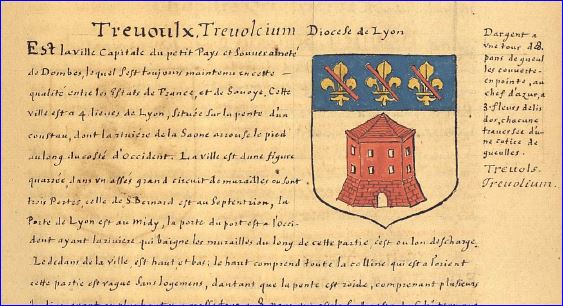 Trevoulx, Trevolcium Diocese de Lyon
Est la ville Capitale du petit Pays et Souverainoté
de Dombes, lequel s'est toujours maintenu en cette
qualité entre les Estats de France, et de Savoye, Cette
ville est a 4 lieues de Lyon, située sur la pente d'un
coustau, dont la riviere de la Saone arrouse le pied
au long du costé d'Occident. La ville est d'une figure
quarrée, dans vn asses grand circuit de murailles ou sont
trois Portes, celle de S. Bernard est au Septentrion, la
Porte de Lyon est au Midy, la porte du port est a l'Occi-
dent ayant la riviere qui baigne les murailles du long de cette partie, c'est ou l'on descharge.
Le dedans de la ville, est haut et bas; le haut comprend toute la colline qui est a l'orient
cette partie est vague sans logemens, dautant que la pente est roide, comprenant plusieurs
D'argent a
vne tour d 8.
pans de gueul
les couverte
en pointe, au
chef d'azur, a
3. fleurs de lis
d'or, chacune
traversée d'u-
ne cotice de
gueulles.
Trevols.
Trevolium.